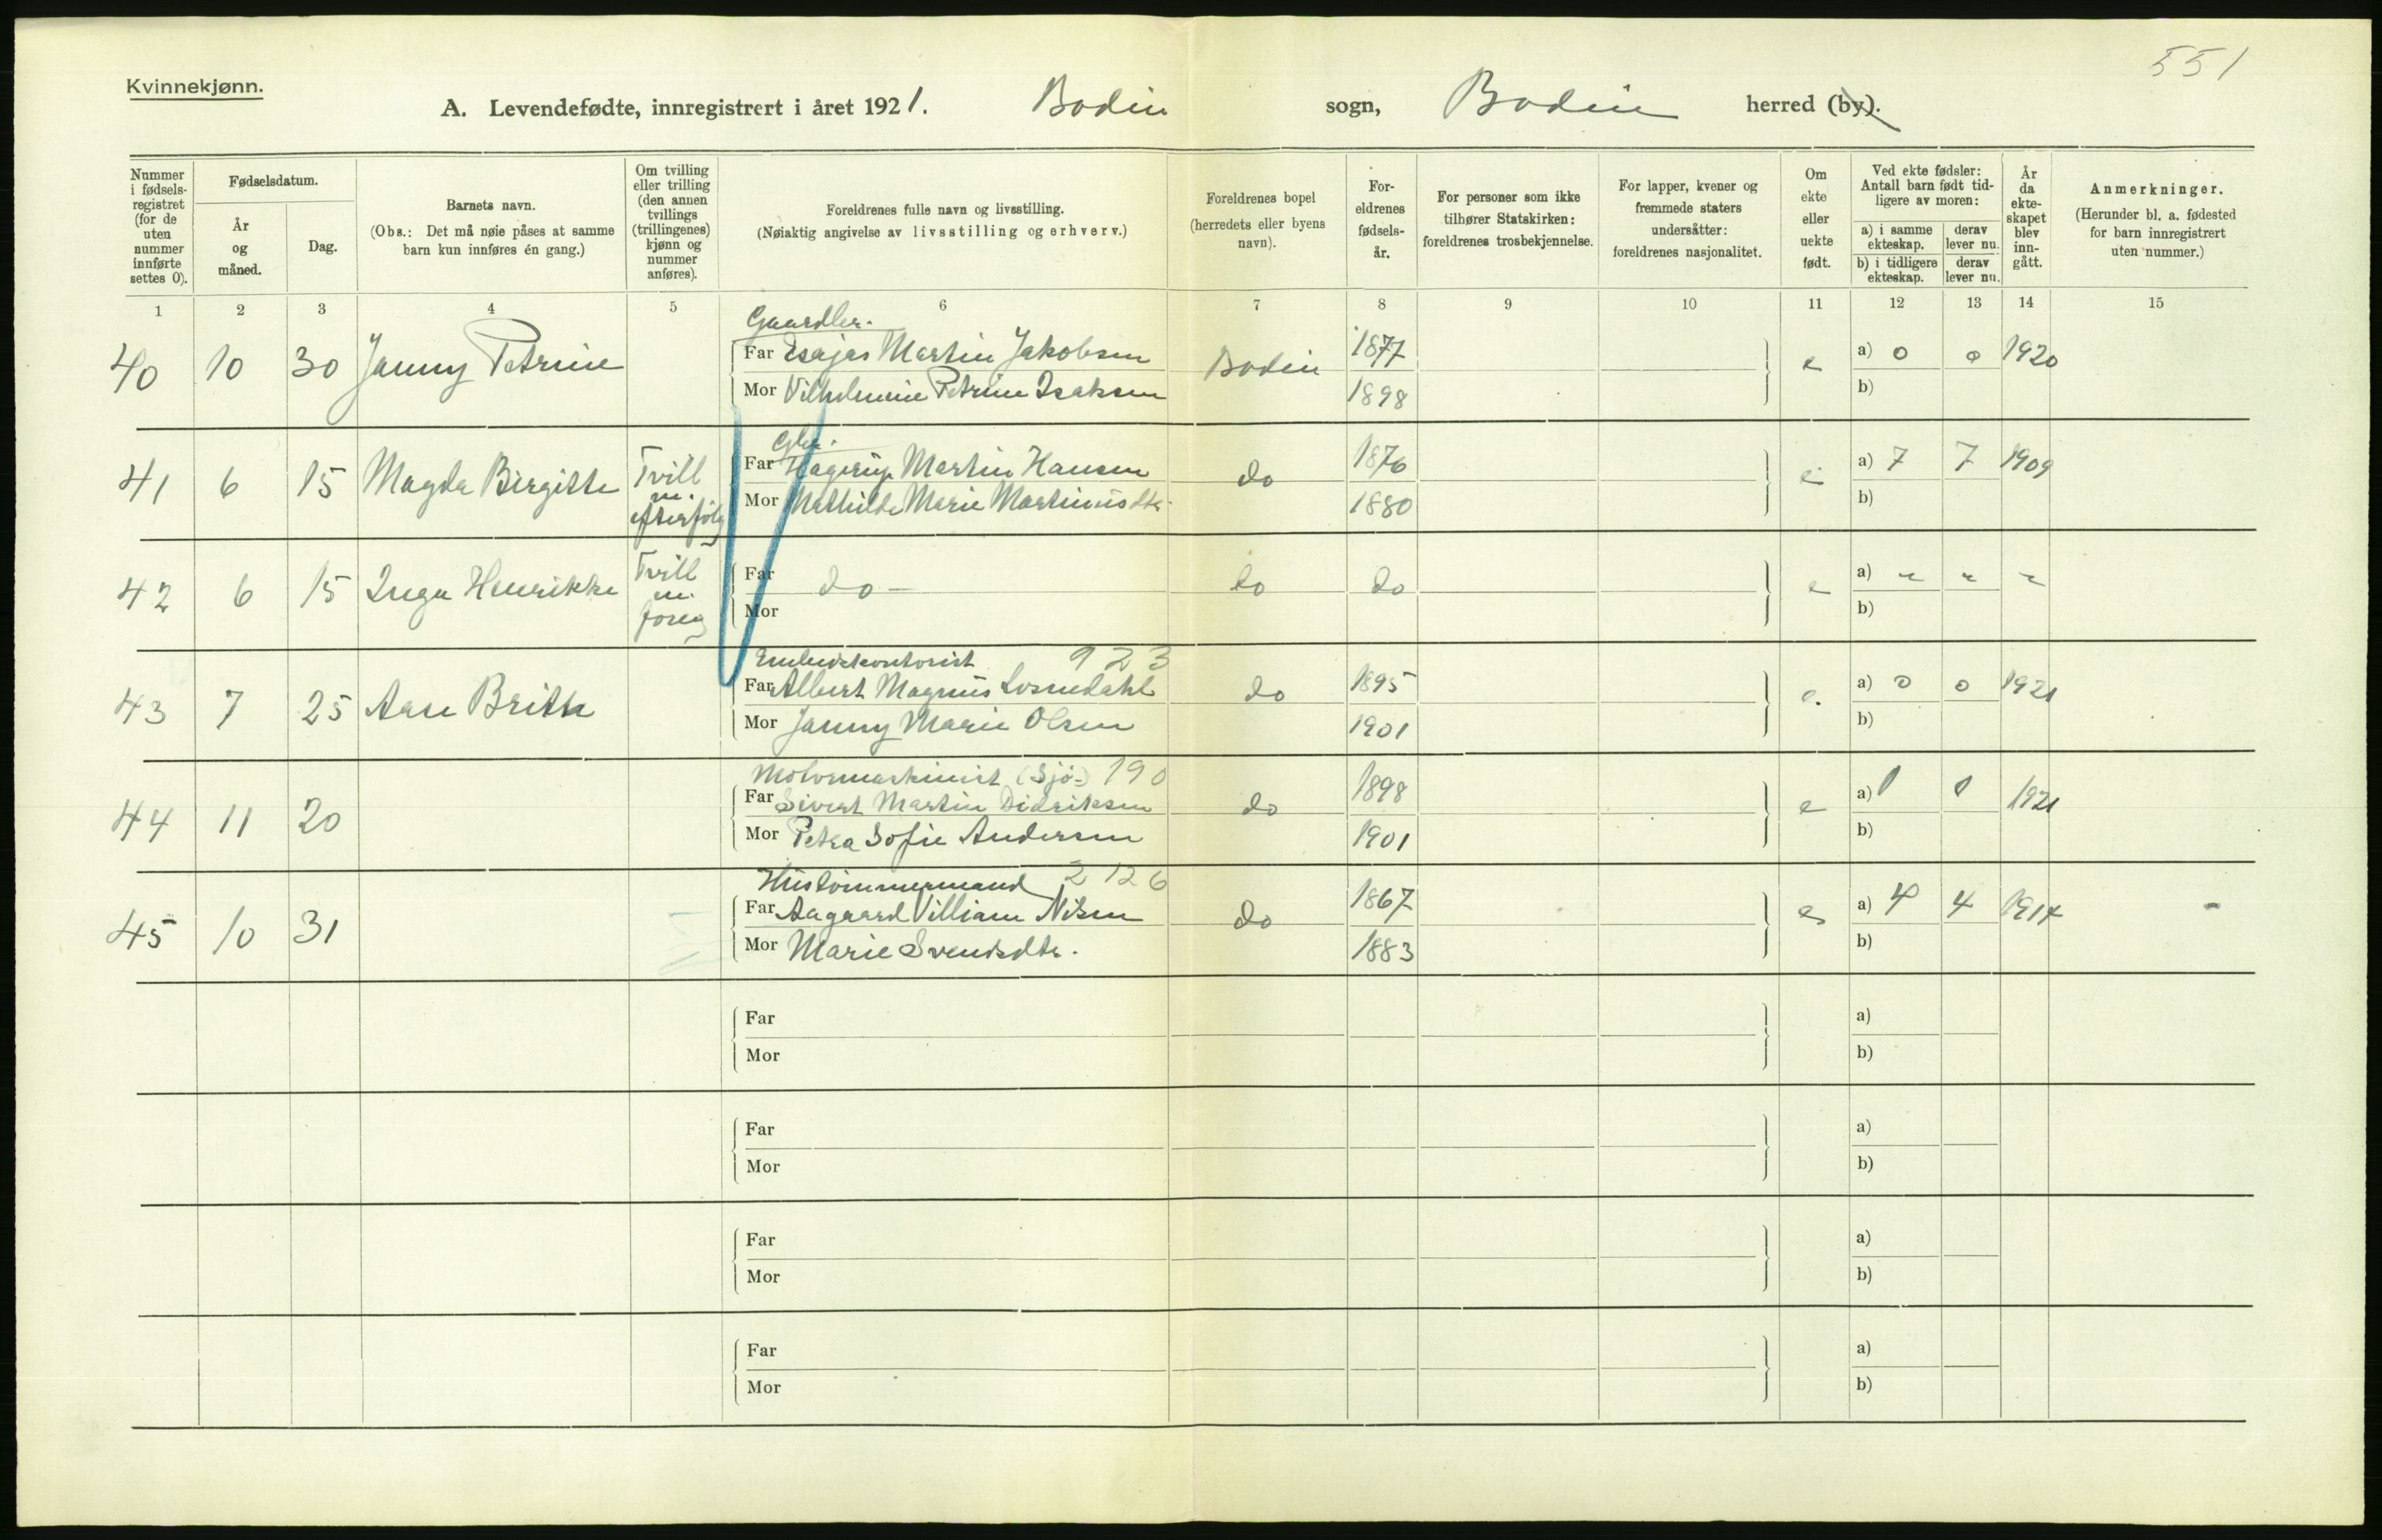 551
Kvinnekjønn.
A. Levendefødte, innregistrert i året 1921. Bodin sogn, Bodin herred (by).
Nummer i fødsels-registret (for de uten nummer innførte settes 0).
Fødselsdatum.
År og måned.
Dag.
Barnets navn.
(Obs.: Det må nøie påses at samme barn kun innføres én gang.)
Om tvilling eller trilling (den annen tvillings (trillingenes) kjønn og nummer anføres).
Foreldrenes fulle navn og livsstilling.
(Nøiaktig angivelse av livsstilling og erhverv.)
Foreldrenes bopel (herredets eller byens navn).
For-eldrenes fødsels-år.
For personer som ikke tilhører Statskirken: foreldrenes trosbekjennelse.
For lapper, kvener og fremmede staters undersåtter: foreldrenes nasjonalitet.
Om ekte eller uekte født.
Ved ekte fødsler: Antall barn født tid-ligere av moren:
a) i samme ekteskap.
derav lever nu.
b) i tidligere ekteskap.
derav lever nu.
År da ekte-skapet blev inn-gått.
Anmerkninger.
(Herunder bl. a. fødested for barn innregistrert uten nummer.)
1 2 3 4 5 6 7 8 9 10 11 12 13 14 15
Gaardbr.
40 10 30 Janny Petrine Far Esajas Martin Jakobsen Bodin 1877 e a) 0 0 1920
Mor Vilhelmine Petrine Isaksen 1898 b)
Gbr.
41 6 15 Magda Birgitte Tvill m. efterfølg Far Hagerup Martin Hansen do 1876 e a) 7 7 1909
Mor Mathilde Marie Martinusdtr. 1880 b)
42 6 15 Inga Henrikke Tvill m. foreg Far do - do do e a) " " "
Mor b)
923
43 7 25 Aase Britte Far Albert Magnus do 1895 e. a) 0 0 1921
Mor Janny Marie Olsen 1901 b)
Motormaskinist (Sjø-) 190
44 11 20 Far Sivert Martin Didriksen do 1898 e a) 1 1921
Mor Petra Sofie Andersen 1901 b)
Hustømmermand 2126
45 10 31 Far Aagaard Villiam Nilsen do 1867 e a) 4 4 1914 -
Mor Marie Svendsdtr. 1883 b)
Far a)
Mor b)
Far a)
Mor b)
Far a)
Mor b)
Far a)
Mor b)